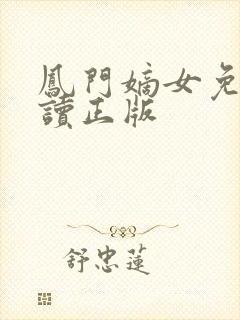 鳳門嫡女免
讀正版
舒忠蓮